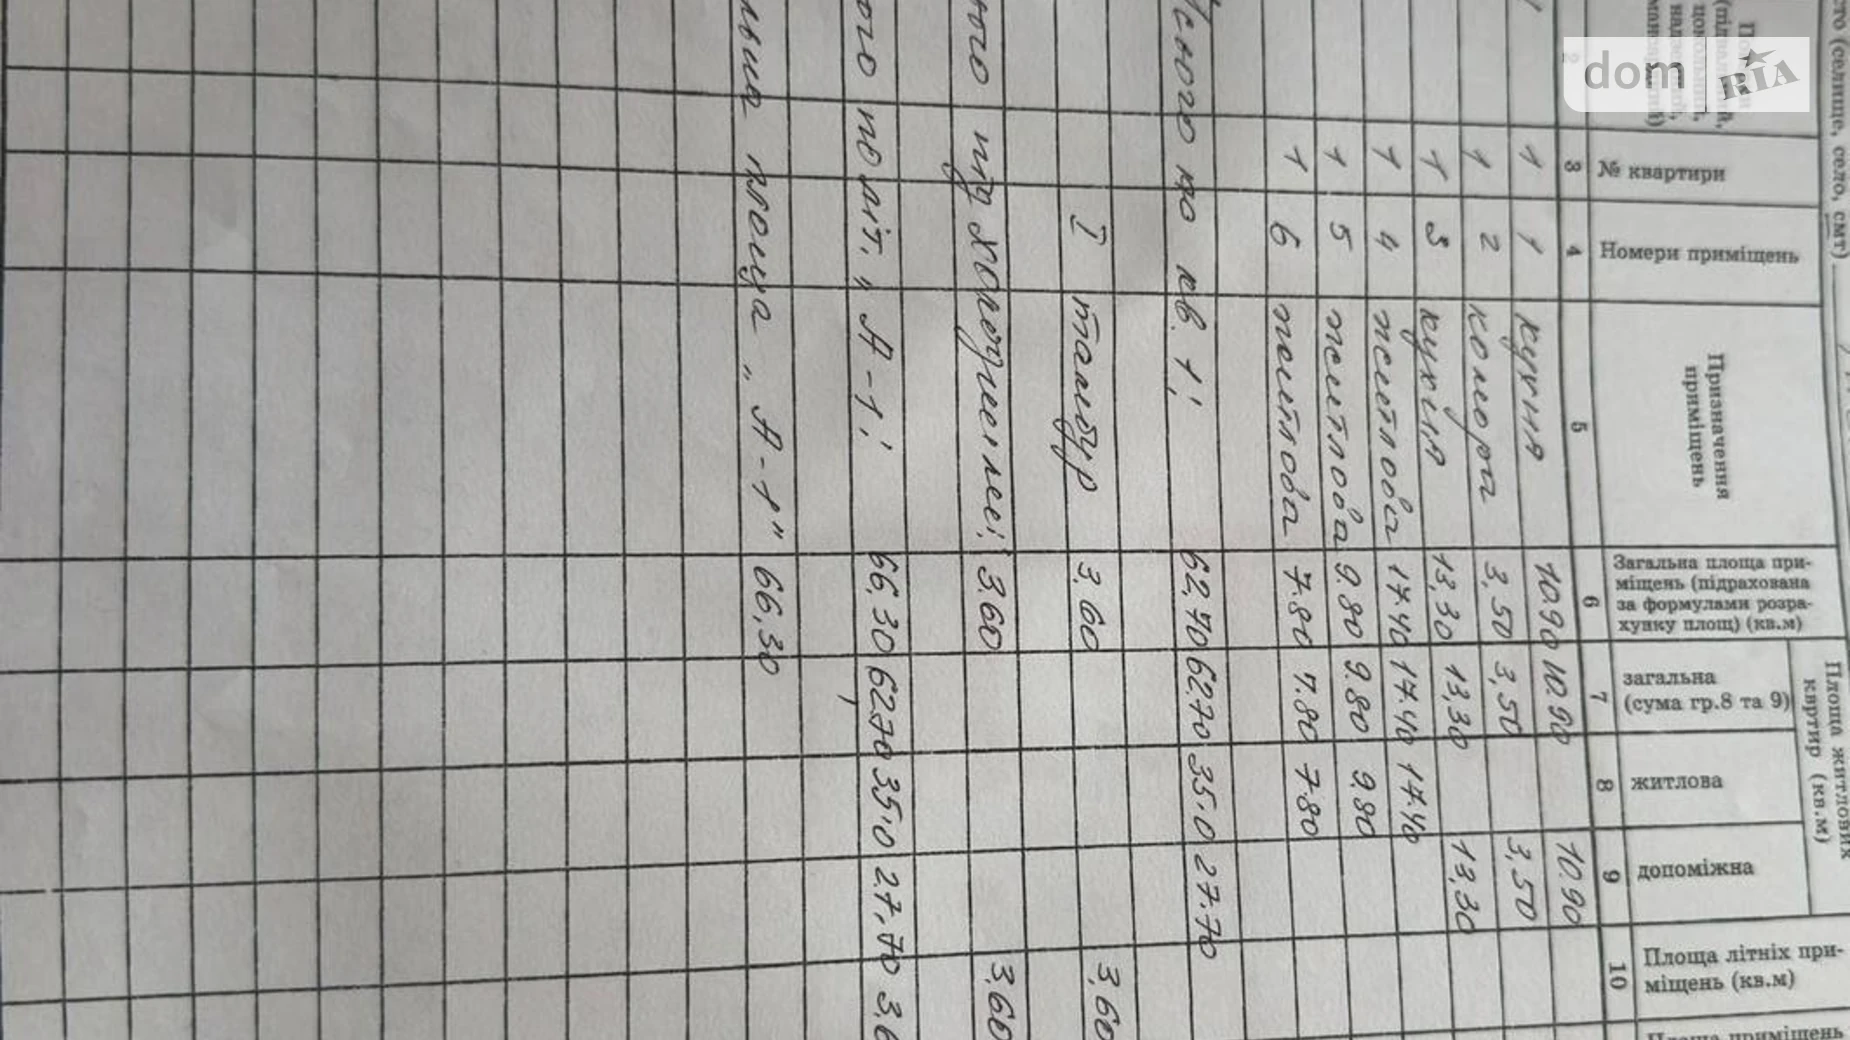 dom RIA
сто (селище, село, смт)
№ квартири
Номери приміщень
Призначення
приміщень
Загальна площа при-
міщень (підрахована
за формулами розра-
хунку площ) (кв.м)
Площа житлових
квартир (кв.м)
загальна
(сума гр.8 та 9)
житлова
допоміжна
Площа літніх при-
міщень (кв.м)
3 4 5 6 7 8 9 10
1 1 кухня 10.90 10.90 10.90
1 2 комора 3,50 3,50 3,50
1 3 кухня 13,30 13,30 13,30
1 4 житлова 17.40 17.40 17.40
1 5 житлова 9.80 9.80 9.80
1 6 житлова 7.80 7.80 7.80
по кв. 1: 62,70 62.70 35.0 27.70
I тамбур 3,60 3,60
3.60 3.60
по літ. „А-1: 66,30 62.70 35.0 27,70
площа „А-1" 66,30